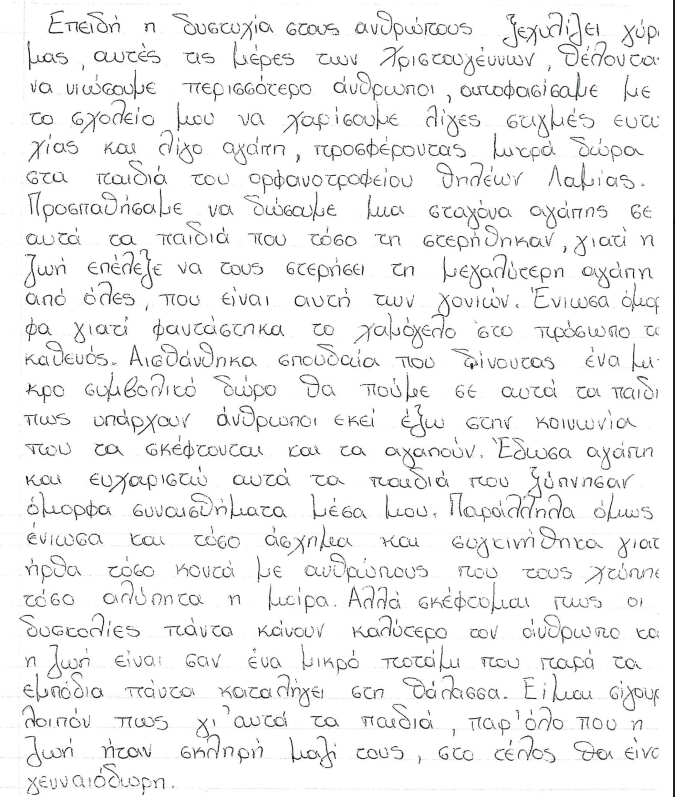 Επειδή η δυστυχία στους ανθρώπους ξεχυλίζει γύρ
μας, αυτές τις μέρες των Χριστουγέννων, θέλοντα
να νιώσουμε περισσότερο άνθρωποι, αποφασίσαμε με
το σχολείο μου να χαρίσουμε λίγες στιγμές ευτυ
χίας και λίγο αγάπη, προσφέροντας μικρά δώρα
στα παιδιά του ορφανοτροφείου θηλέων Λαμίας.
Προσπαθήσαμε να δώσουμε μια σταγόνα αγάπης σε
αυτά τα παιδιά που τόσο τη στερήθηκαν, γιατί η
ζωή επέλεξε να τους στερήσει τη μεγαλύτερη αγάπη
από όλες, που είναι αυτή των γονιών. Ένιωσα όμορ
φα γιατί φαντάστηκα το χαμόγελο στο πρόσωπο τ
καθενός. Αισθάνθηκα σπουδαία που δίνοντας ένα μι
κρο συμβολικό δώρο θα πούμε σε αυτά τα παιδι
πως υπάρχουν άνθρωποι εκεί έξω στην κοινωνία
που τα σκέφτονται και τα αγαπούν. Έδωσα αγάπη
και ευχαριστώ αυτά τα παιδιά που ξύπνησαν
όμορφα συναισθήματα μέσα μου. Παράλληλα όμως
ένιωσα και τόσο άσχημα και συγκινήθηκα γιατ
ήρθα τόσο κοντά με ανθρώπους που τους χτύπησ
τόσο αλύπητα η μοίρα. Αλλά σκέφτομαι πως οι
δυσκολίες πάντα κάνουν καλύτερο τον άνθρωπο κα
η ζωή είναι σαν ένα μικρό ποτάμι που παρά τα
εμπόδια πάντα καταλήγει στη θάλασσα. Είμαι σίγουρ
λοιπόν πως γι'αυτά τα παιδιά, παρ'όλο που η
ζωή ήταν σκληρή μαζί τους, στο τέλος θα είνα
γενναιόδωρη.